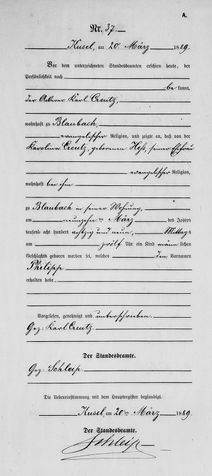 A.
Nr. 37.
Kusel, am 20 März 1889.
Vor dem unterzeichneten Standesbeamten erschien heute, der
Persönlichkeit nach
be kannt,
der Ackerer Karl Creutz,
wohnhaft zu Blaubach,
evangelischer Religion, und zeigte an, daß von der
Karolina Creutz, geborenen Heß, seiner Ehefrau
evangelischer Religion,
wohnhaft bei ihm
zu Blaubach in seiner Wohnung,
am neunzehn ten März des Jahres
tausend acht hundert achtzig und neun, Mittags
um zwölf Uhr ein Kind männ lichen
Geschlechts geboren worden sei, welches den Vornamen
Philipp
erhalten habe.
Vorgelesen, genehmigt und unterschrieben.
Gez. Karl Creutz
Der Standesbeamte.
Gez. Schleip
Die Uebereinstimmung mit dem Hauptregister beglaubigt.
Kusel, am 20ten März 1889
Der Standesbeamte.
Schleip